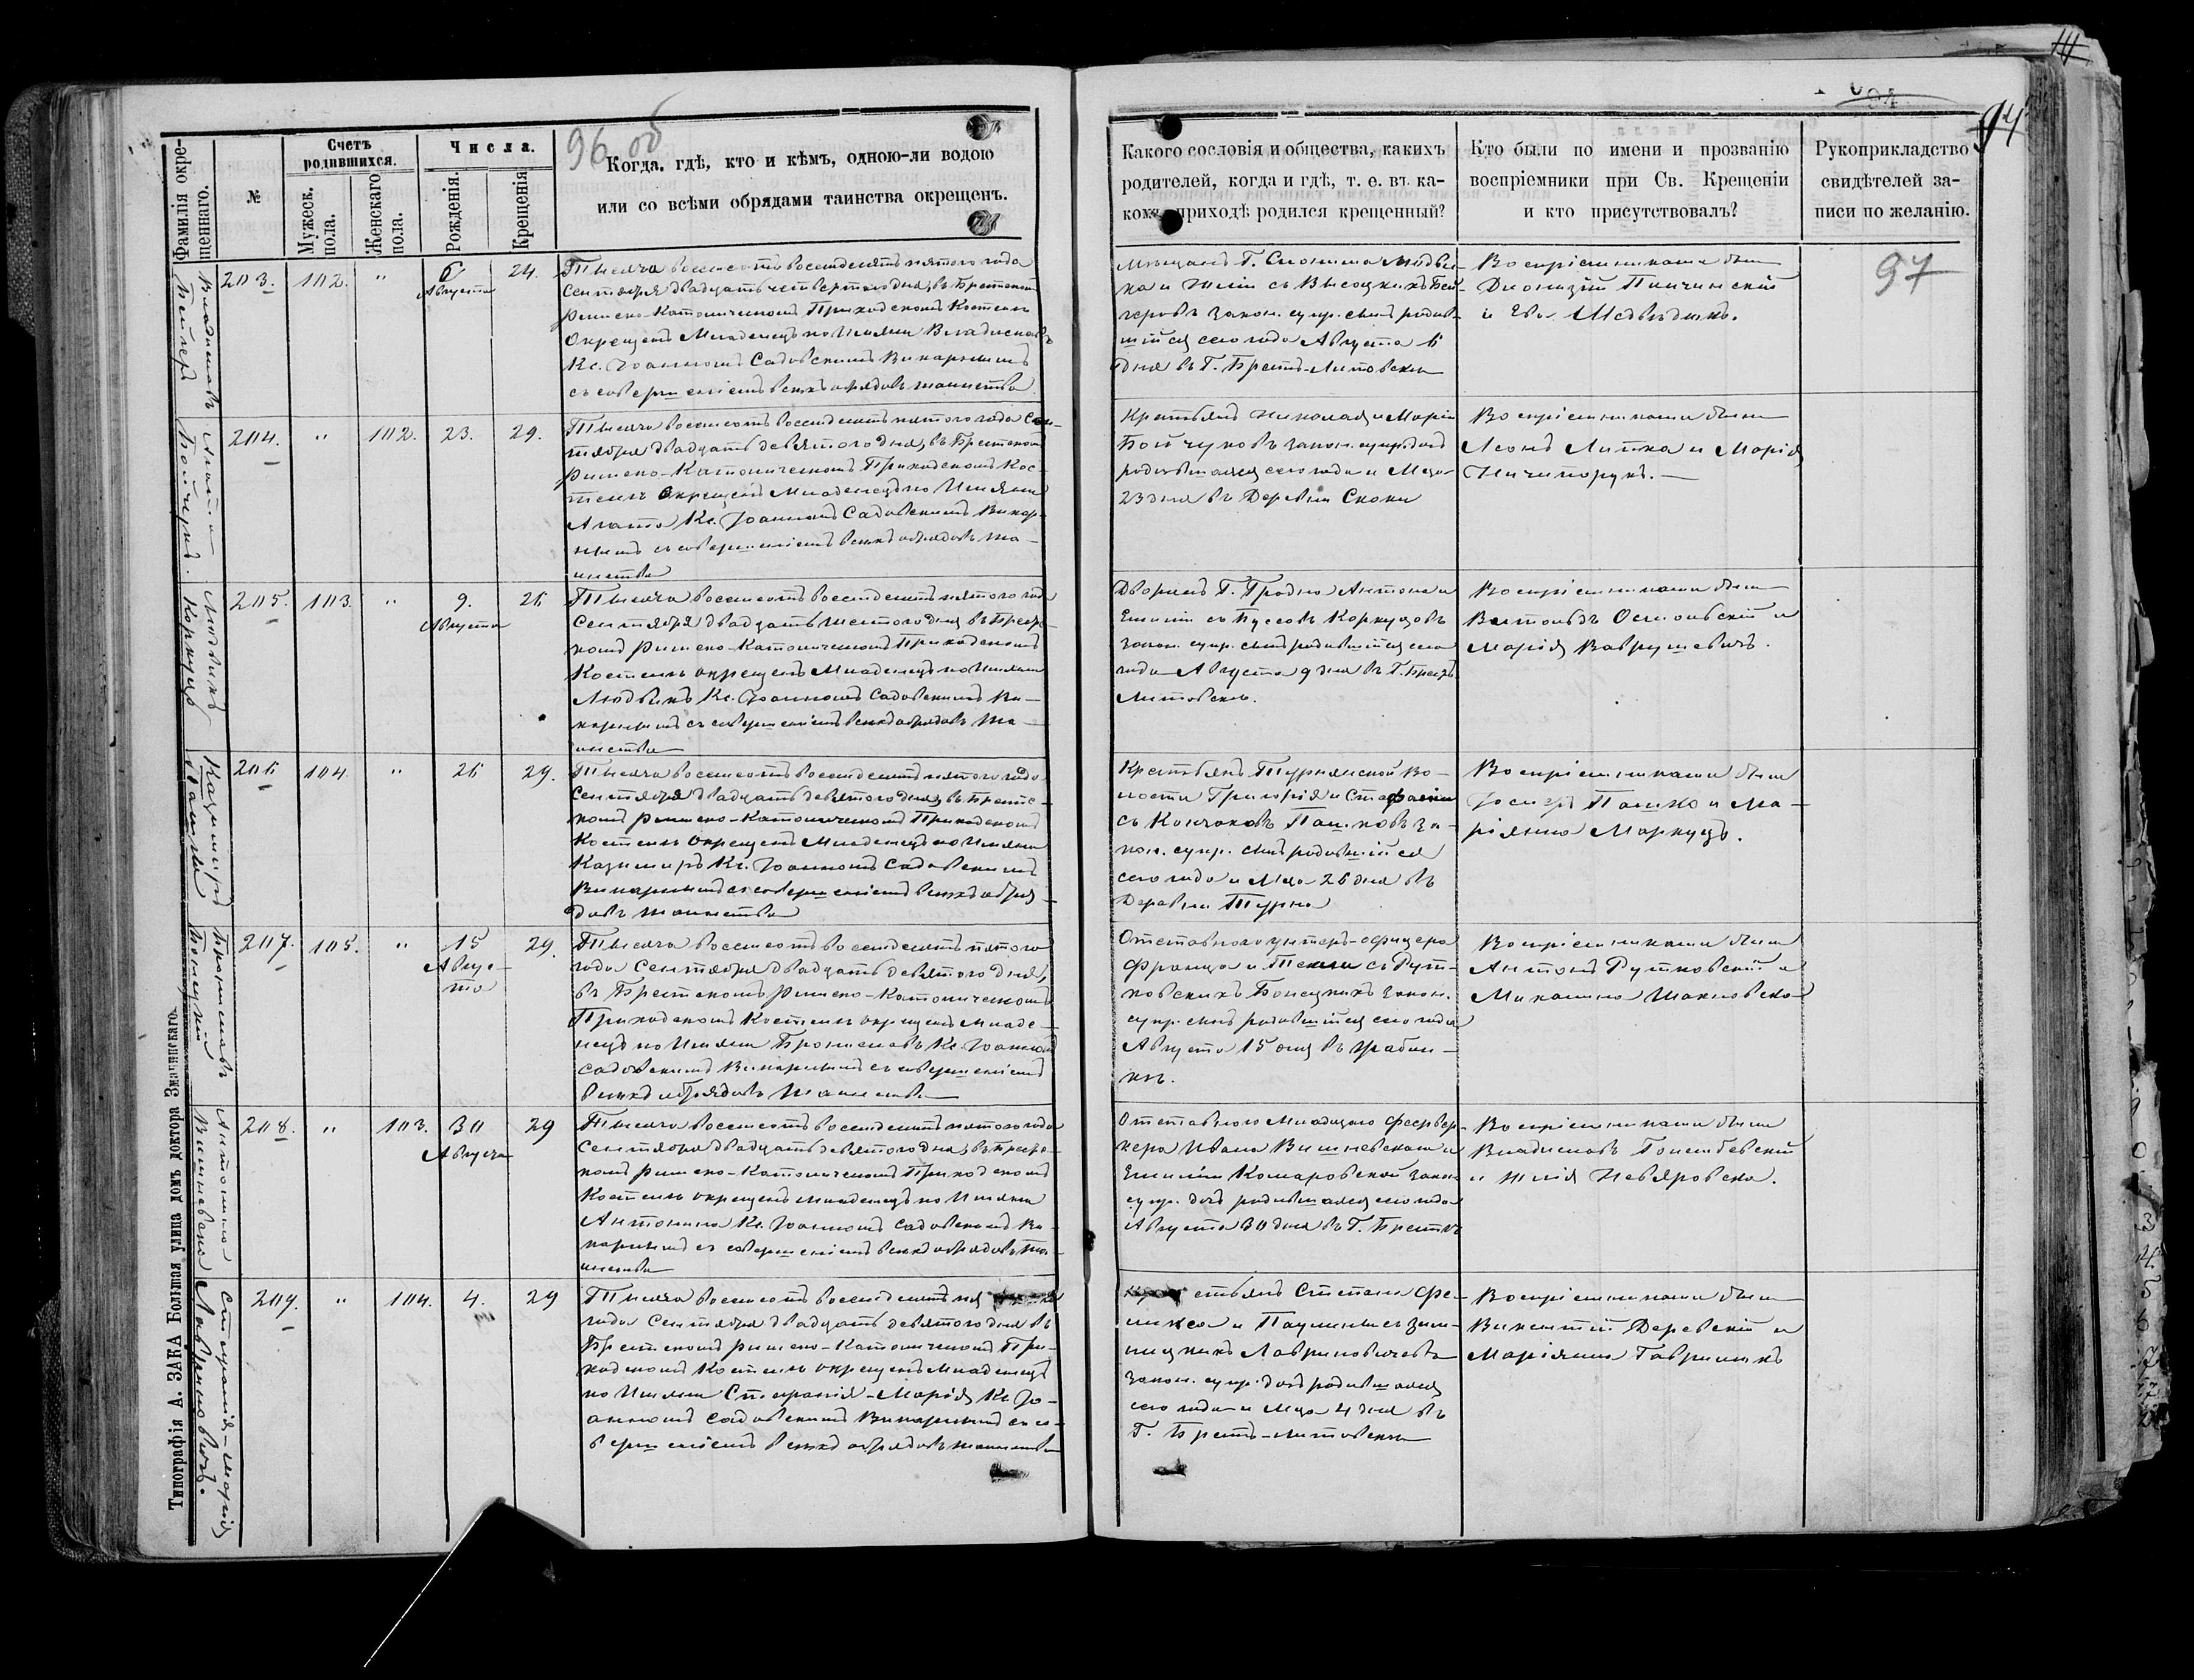 96 об
Фамилія окре-
щеннаго.
№
Счетъ
родившихся.
Мужеск.
пола.
Женскаго
пола.
Числа.
Рожденія.
Крещенія
Когда, гдѣ, кто и кѣмъ, одною-ли водою
или со всѣми обрядами таинства окрещенъ.
Владиславъ
Бейгеръ
203.
102.
"
6
Августа
24.
Тысяча восемсотъ восемдесятъ пятого года
Сентября двадцать четвертого дня, въ Брестскомъ
Римско-Католическомъ Приходскомъ Костелѣ
Окрещенъ Младенецъ по Имяни Владиславъ
Кс. Іоанномъ Садовскимъ Викарнымъ
съ совершеніемъ всѣхъ обрядовъ таинства
Агата
Бойчукъ.
204.
"
102.
23.
29.
Тысяча восемсотъ восемдесятъ пятого года Сен-
тября двадцать девятого дня, въ Брестскомъ
Римско-Католическомъ Приходскомъ Кос-
телѣ Окрещенъ Младенецъ по Имяни
Агата Кс. Іоанномъ Садовскимъ Викар-
нымъ съ совершеніемъ всѣхъ обрядовъ та-
инства
Людвикъ
Коркуцъ
205.
103.
"
9.
Августа
26
Тысяча восемсотъ восемдесятъ пятого года
Сентября двадцать шестого дня въ Брест-
комъ Римско-Католическомъ Приходскомъ
Костелѣ окрещенъ Младенецъ по Имяни
Людвикъ Кс. Іоанномъ Садовскимъ Ви-
карнымъ съ совершеніемъ всѣхъ обрядовъ та-
инства
Казимиръ
Пашко
206
104.
"
26
29.
Тысяча восемсотъ восемдесятъ пятого года
Сентября двадцать девятого дня, въ Брестс-
комъ Римско-Католическомъ Приходскомъ
Костелѣ Окрещенъ Младенецъ по Имяни
Казимиръ Кс. Іоанномъ Садовскимъ
Викарнымъ съ совершеніемъ всѣхъ обря-
довъ таинства
Брониславъ
207.
105.
"
15
Авгус-
та
29.
Тысяча восемсотъ восемдесятъ пятого
года Сентября двадцать девятого дня,
въ Брестскомъ Римско-Католическомъ
Приходскомъ Костелѣ окрещенъ Младе-
нецъ по Имяни Брониславъ Кс. Іоанномъ
Садовскимъ Викарнымъ съ совершеніемъ
всѣхъ обрядовъ таинства
Антонина
Вишневска
208.
"
103.
30
Августа
29
Тысяча восемсотъ восемдесятъ пятого года
Сентября двадцать девятого дня, въ Брест-
комъ Римско-Католическомъ Приходскомъ
Костелѣ окрещенъ младенецъ по Имяни
Антонина Кс. Іоанномъ Садовскимъ Ви-
карнымъ съ совершеніемъ всѣхъ обрядовъ та-
инства
Стефанія-Марія
Лавриновичъ.
209.
"
104.
4.
29
Тысяча восемсотъ восемдесятъ пя
года Сентября двадцать девятого дня въ
Брестскомъ Римско-Католическомъ При-
ходскомъ Костелѣ окрещенъ Младенецъ
по Имяни Стефанія-Марія Кс. Іо-
анномъ Садовскимъ Викарнымъ съ со-
вершеніемъ всѣхъ обрядовъ таинства
Типографія А. ЗАКА Большая улица домъ доктора
94
Какого сословія и общества, какихъ
родителей, когда и гдѣ, т. е. въ ка-
комъ приходѣ родился крещенный?
Кто были по имени и прозванію
воспріемники при Св. Крещеніи
и кто присутствовалъ?
Рукоприкладство
свидѣтелей за-
писи по желанію.
97
Мѣщанъ Г. Слонима Людви-
ка и съ Высоцкихъ Бей-
геровъ закон. супр. сынъ родив-
шійся сего года Августа 6
дня въ Г. Брестъ-Литовскѣ
Воспріемниками были
Діонизій
и Ева Медвѣдюкъ.
Крестьянъ Николая и Маріи
Бойчуковъ закон. супр. дочь
родившаяся сего года и Мца
23 дня въ Деревнѣ Скоки
Воспріемниками были
Леонъ Липка и Марія
Ничипорукъ.
Дворянъ Г. Гродно Антона и
Емиліи съ Коркуцовъ
закон. супр. сынъ родившійся сего
года Августа 9 дня въ Г. Брестъ
Литовскѣ.
Воспріемниками были
Витольдъ и
Марія Ваврушевичъ.
Крестьянъ Турнянской Во-
лости Григорія и Стефаніи
съ Пашковъ за-
кон. супр. сынъ родившійся
сего года и Мца 26 дня въ
Деревнѣ Турна
Воспріемниками были
Іосифъ Пашко и Ма-
ріянна Маркуцъ.
Отставного унтеръ-офицера
Франца и Теклы съ Рут-
ковскихъ закон.
супр. сынъ родившійся сего года
Августа 15 дня въ
Воспріемниками были
Антонъ Рутковскій и
Отставного Младшаго Феервер-
кера Ивана Вишневскаго и
Емиліи Комаровской закон.
супр. дочь родившаяся сего года
Августа 30 дня въ Г. Брестѣ
Воспріемниками были
Владиславъ Голембевскій
и Юлія Невяровска.
Крестьянъ Степана Фе-
ликса и Паулины съ
Лавриновичевъ
закон. супр. дочь родившаяся
сего года и Мца 4 дня въ
Г. Брестъ-Литовскѣ
Воспріемниками были
Викентій Деревскій и
Маріянна Гаврилюкъ